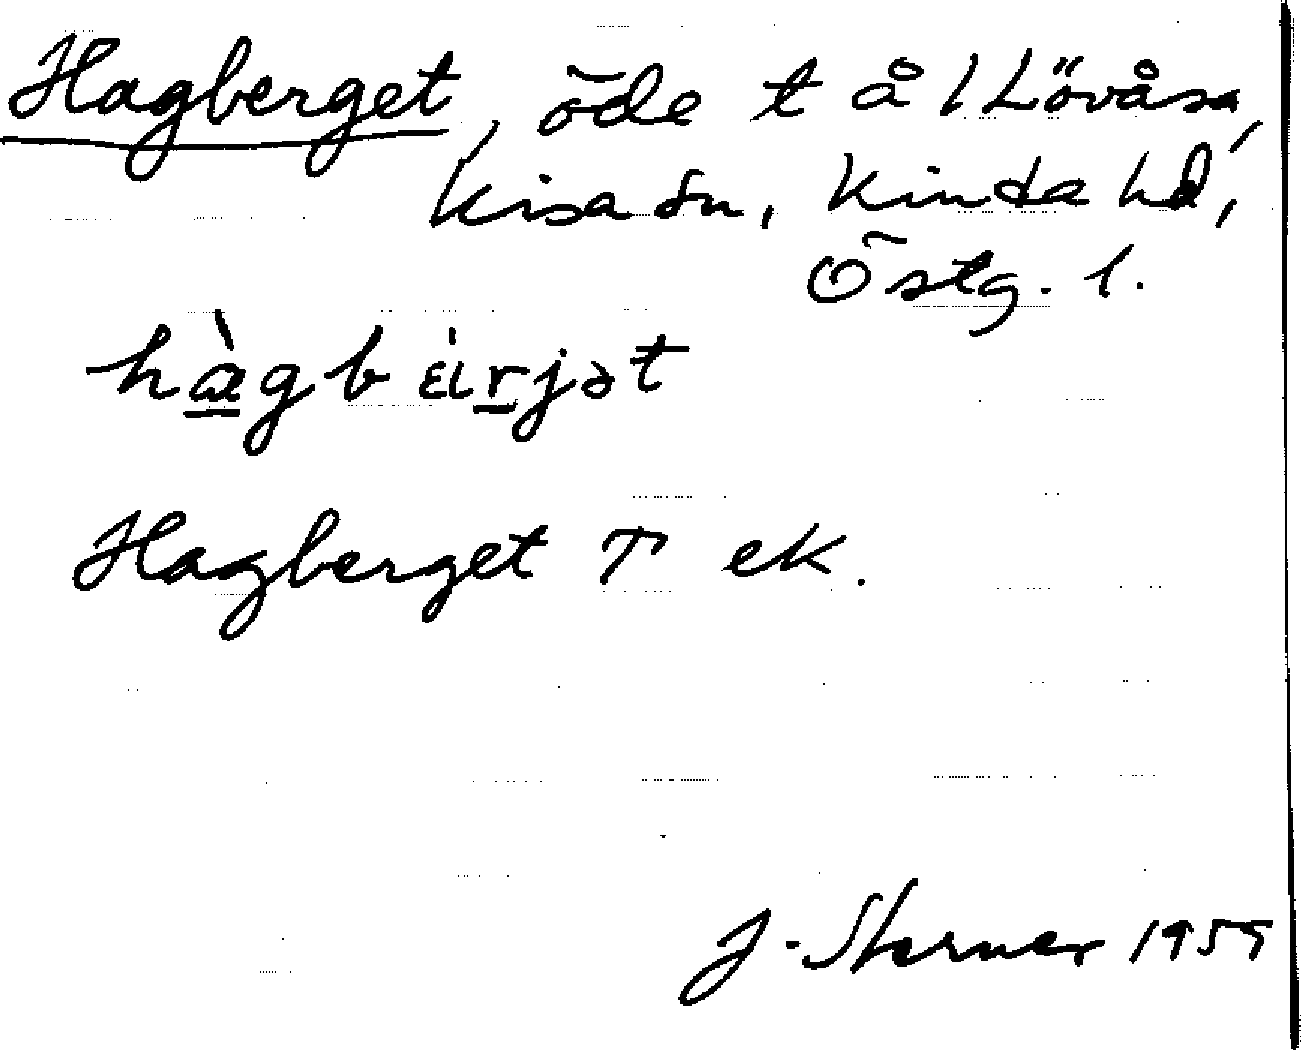 Hagberget, öde t å 1 Lövåsa,
Kisa sn, Kinda hd,
Östg. l.
hàgbèirjət
Hagberget T ek.
J. Sterner 1955